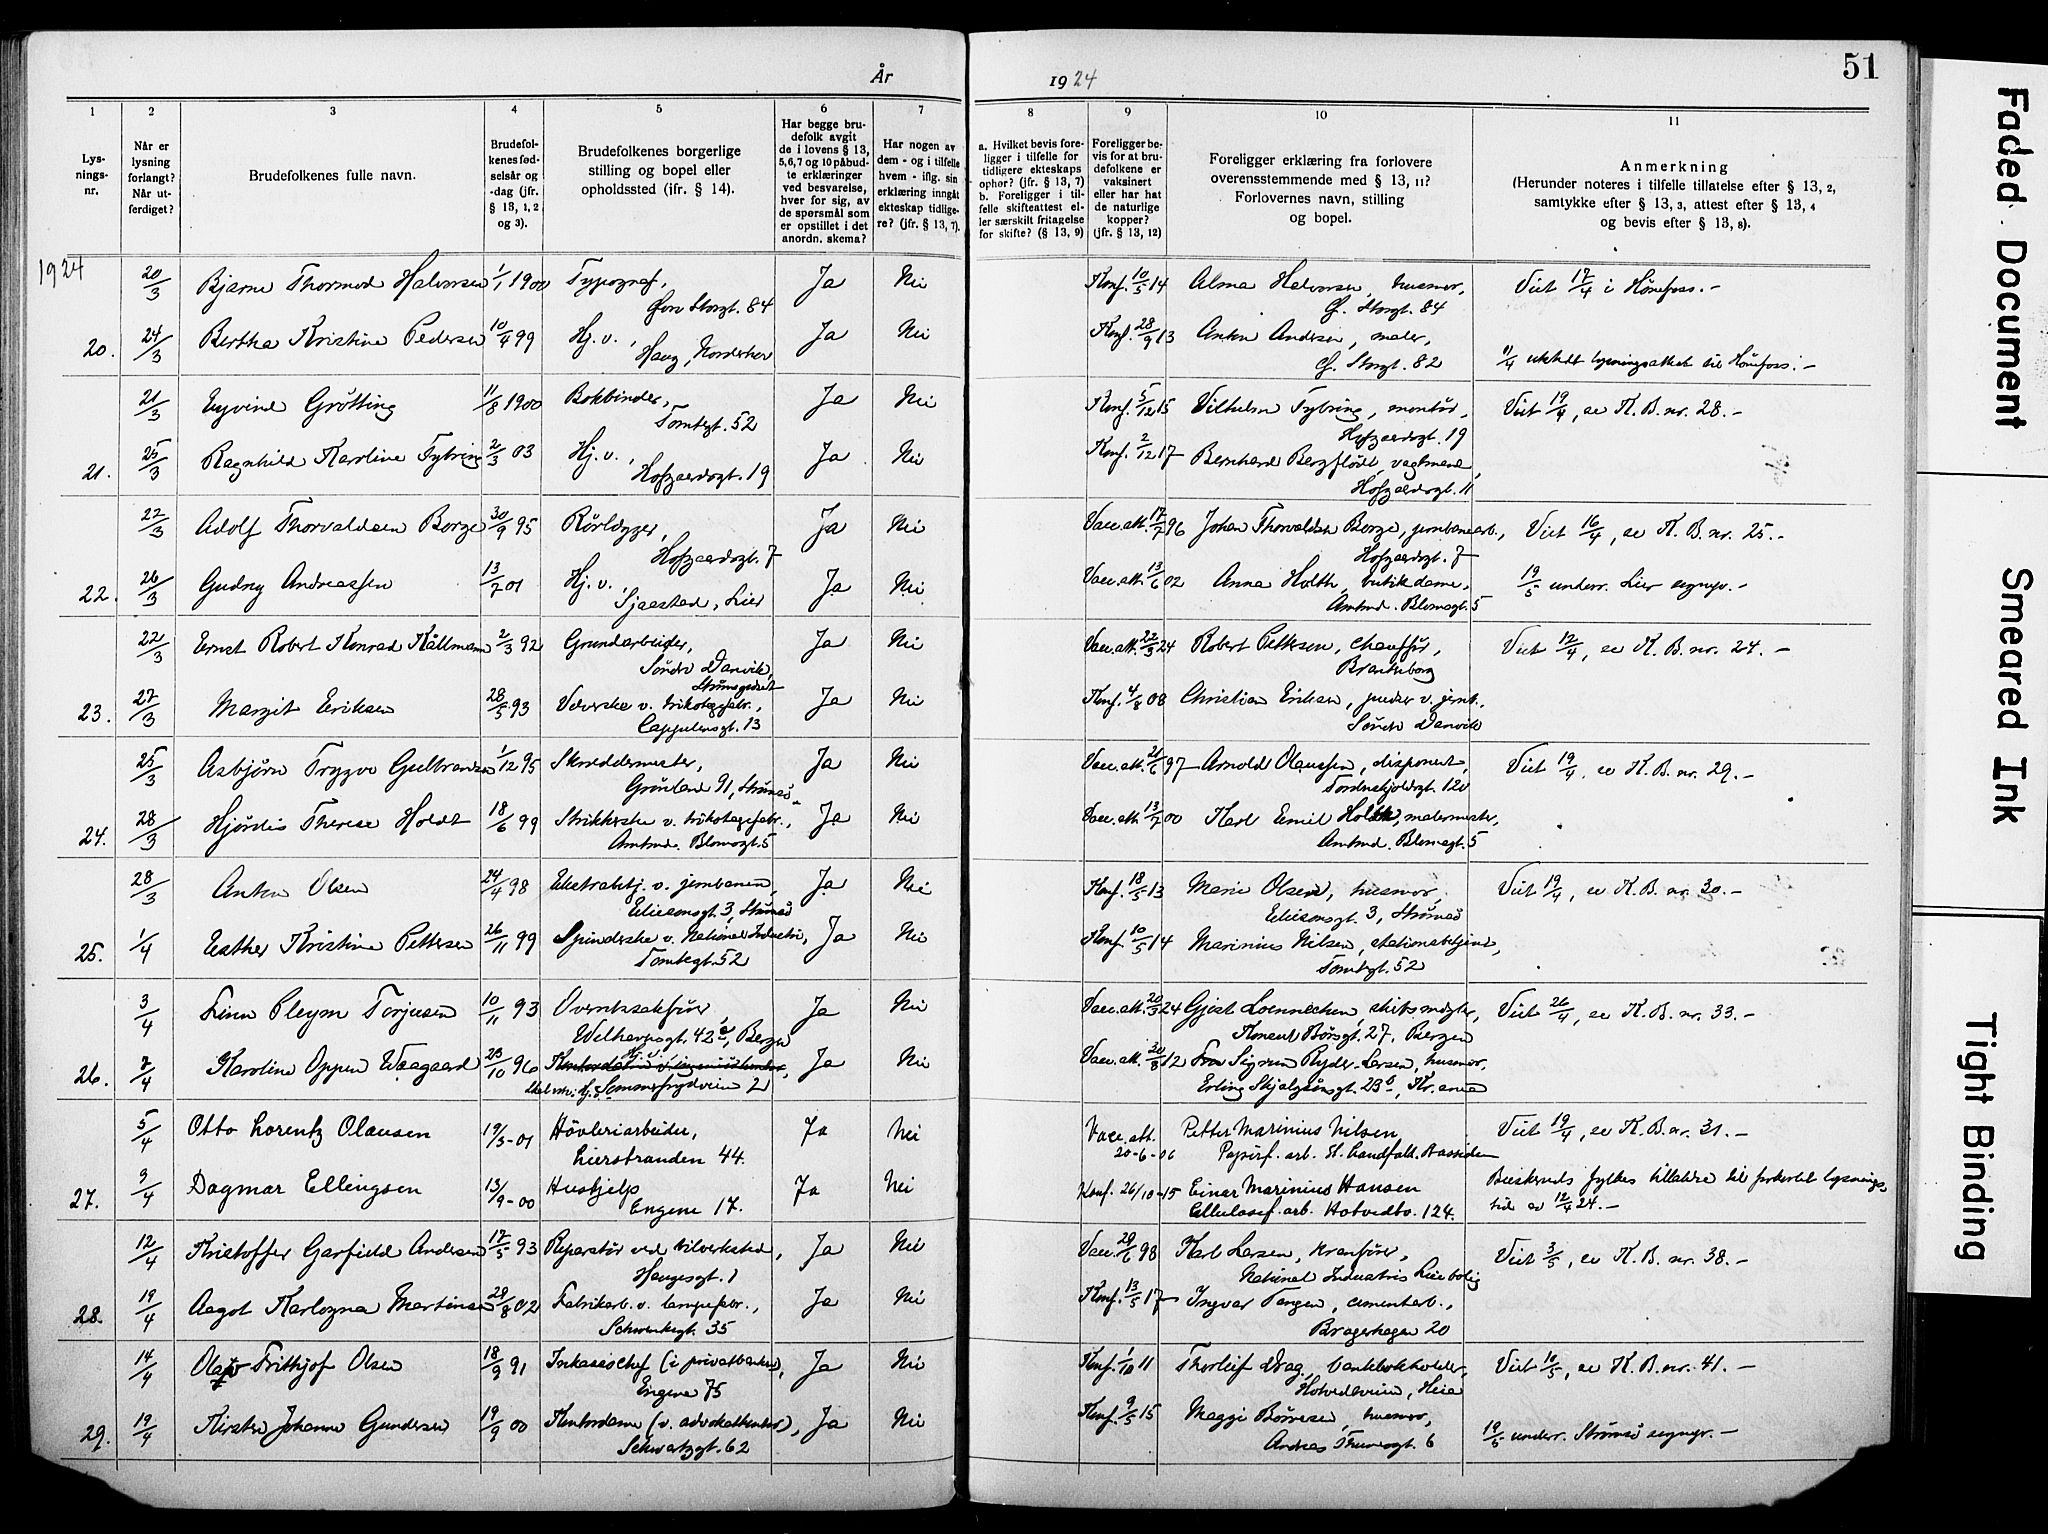 År 1924
51
1 2 3 4 5 6 7 8 9 10 11
Lysningsnr.
Når er lysning forlangt? Når utferdiget?
Brudefolkenes fulle navn.
Brudefolkenes fødselsår og -dag (jfr. § 13, 1, 2 og 3).
Brudefolkenes borgerlige stilling og bopel eller opholdssted (jfr. § 14).
Har begge brudefolk avgit de i lovens § 13, 5, 6, 7 og 10 påbudte erklæringer ved besvarelse, hver for sig, av de spørsmål som er opstillet i det anordn. skema?
Har nogen av dem - og i tilfelle hvem - iflg. sin erklæring inngått ekteskap tidligere? (jfr. § 13, 7).
a. Hvilket bevis foreligger i tilfelle for tidligere ekteskaps ophør? (jfr. § 13, 7) b. Foreligger i tilfelle skifteattest eller særskilt fritagelse for skifte? (§ 13, 9)
Foreligger bevis for at brudefolkene er vaksinert eller har hat de naturlige kopper? (jfr. § 13, 12)
Foreligger erklæring fra forlovere overensstemmende med § 13, 11? Forlovernes navn, stilling og bopel.
Anmerkning
(Herunder noteres i tilfelle tillatelse efter § 13, 2, samtykke efter § 13, 3, attest efter § 13, 4 og bevis efter § 13, 8).
1924
20/3 Bjarne Thormod Halvorsen 1/1 1900 Typograf, Øvre Storgt. 84 Ja Nei Konf. 10/5 14 Alma Halvorsen, husmor, Ø. Storgt. 84 Viet 17/4 i Hönefoss. -
20. 24/3 Bertha Kristine Pedersen 10/4 99 Hj. v., Haug, Norderhov Ja Nei Konf. 28/9 13 Anton Andersen, maler, Ø. Storgt. 82 11/4 utstedt lysningsattest til Hönefoss. -
21/3 Eyvind Grötting 11/8 1900 Bokbinder, Tomtegt. 52 Ja Nei Konf. 5/12 15 Vilhelm Tybring, montör, Hofgaardsgt. 19 Viet 19/4, se K. B. nr. 28. -
21. 25/3 Ragnhild Karoline Tybring 2/3 03 Hj. v., Hofgaardsgt. 19 Ja Nei Konf. 2/12 17 Bernhard Bergflödt, vagtmand, Hofgaardsgt. 11
22/3 Adolf Thorvaldsen Borge 30/9 95 Rörlægger, Hofgaardsgt. 7 Ja Nei Vacc. att. 17/7 96 Johan Thorvaldsen Borge, jernbanearb., Hofgaardsgt. 7 Viet 16/4, se K. B. nr. 25. -
22. 26/3 Gudny Andreassen 13/7 01 Hj. v., Sjaastad, Lier Ja Nei Vacc. att. 13/6 02 Anna Holth, butikdame, Amtmd. Blomsgt. 5 19/5 underr. Lier sognepr. -
22/3 Ernst Robert Konrad Källman 2/3 92 Grundarbeider, Söndre Danvik, Strömsgodset Ja Nei Vacc. att. 22/3 24 Robert Pettersen, chaufför, Brantenborg Viet 12/4, se K. B. nr. 24. -
23. 27/3 Margit Eriksen 28/5 93 Væverske v. trikotagefabr., Cappelensgt. 13 Ja Nei Konf. 4/8 08 Christian Eriksen, pudser v. jernb., Söndre Danvik
25/3 Asbjörn Trygve Gulbransen 1/12 95 Skreddermester, Grönland 91, Strömsö Ja Nei Vacc. att. 21/6 97 Arnold Olaussen, disponent, Tordenskjoldsgt. 120 Viet 19/4, se K. B. nr. 29. -
24. 28/3 Hjördis Therese Holdt 18/6 99 Strikkerske v. trikotagefabr., Amtmd. Blomsgt. 5 Ja Nei Vacc. att. 13/7 00 Karl Emil Holth, malermester, Amtmd. Blomsgt. 5
28/3 Anton Olsen 24/4 98 Ekstrabetj. v. jernbanen, Eiliesonsgt. 3, Strömsö Ja Nei Konf. 18/5 13 Marie Olsen, husmor, Eiliesonsgt. 3, Strömsö Viet 19/4, se K. B. nr. 30. -
25. 1/4 Esther Kristine Pettersen 26/11 99 Spinderske v. National Industri, Tomtegt. 52 Ja Nei Konf. 10/5 14 Marinius Nilsen, stationsbetjent, Tomtegt. 52
3/4 Finn Pleym Torjusen 10/11 93 Overretssakfører, Welhavensgt. 42, Bergen Ja Nei Vacc. att. 20/3 24 Gjert Loennechen, skibsmegler, Konsul Börsgt. 27, Bergen Viet 26/4, se K. B. nr. 33. -
26. 7/4 Karoline Oppen Waagaard 23/10 96 Hj. v., Sommerfrydveien 2 Ja Nei Vacc. att. 30/8 12 Fru Sigrun Ryder-Larsen, husmor, Erling Skjalgsönsgt. 23 b, Kr.ania
5/4 Otto Lorentz Olausen 19/3-01 Hövleriarbeider, Lierstranden 44. Ja Nei Vacc. att. 20-6-06 Petter Marinius Nilsen Papirf. arb. St. Landfald. Aassiden Viet 19/4, se K. B. nr. 31. -
27. 9/4 Dagmar Ellingsen 13/9-00 Hushjelp Engene 17. Ja Nei Konf. 26/10-15 Einar Marinius Hansen Cellulosef. arb. Hotvedtv. 124. Buskeruds fylkes tillatelse til forkortet lysningstid av 12/4 24. -
12/4 Kristoffer Garfield Andersen 17/5 93 Reparatör ved bilverksted, Haugesgt. 1 Ja Nei Vacc. 29/6 98 Karl Larsen, kranförer, National Industris Leiebolig Viet 3/5, se K. B. nr. 38. -
28. 19/4 Aagot Karlogna Martinsen 28/8 02 Fabrikarb. v. lampefabr., Schwenkegt. 35 Ja Nei Konf. 13/5 17 Ingvar Tangen, cementarb., Bragerhagen 20
14/4 Olav Frithjof Olsen 18/9 91 Inkassochef (i privatbanken), Engene 75 Ja Nei Konf. 1/10 11 Thorleif Drag, bankbokholder, Hotvedtveien, Heia Viet 10/5, se K. B. nr. 41. -
29. 19/4 Kirsten Johanne Gundersen 19/9 00 Kontordame (v. advokatkontor), Schwartzgt. 62 Ja Nei Konf. 9/5 15 Maggi Börresen, husmor, Andreas Thuresgt. 6 19/5 underr. Strömsö sognepr. -
Faded Document
Smeared Ink
Tight Binding